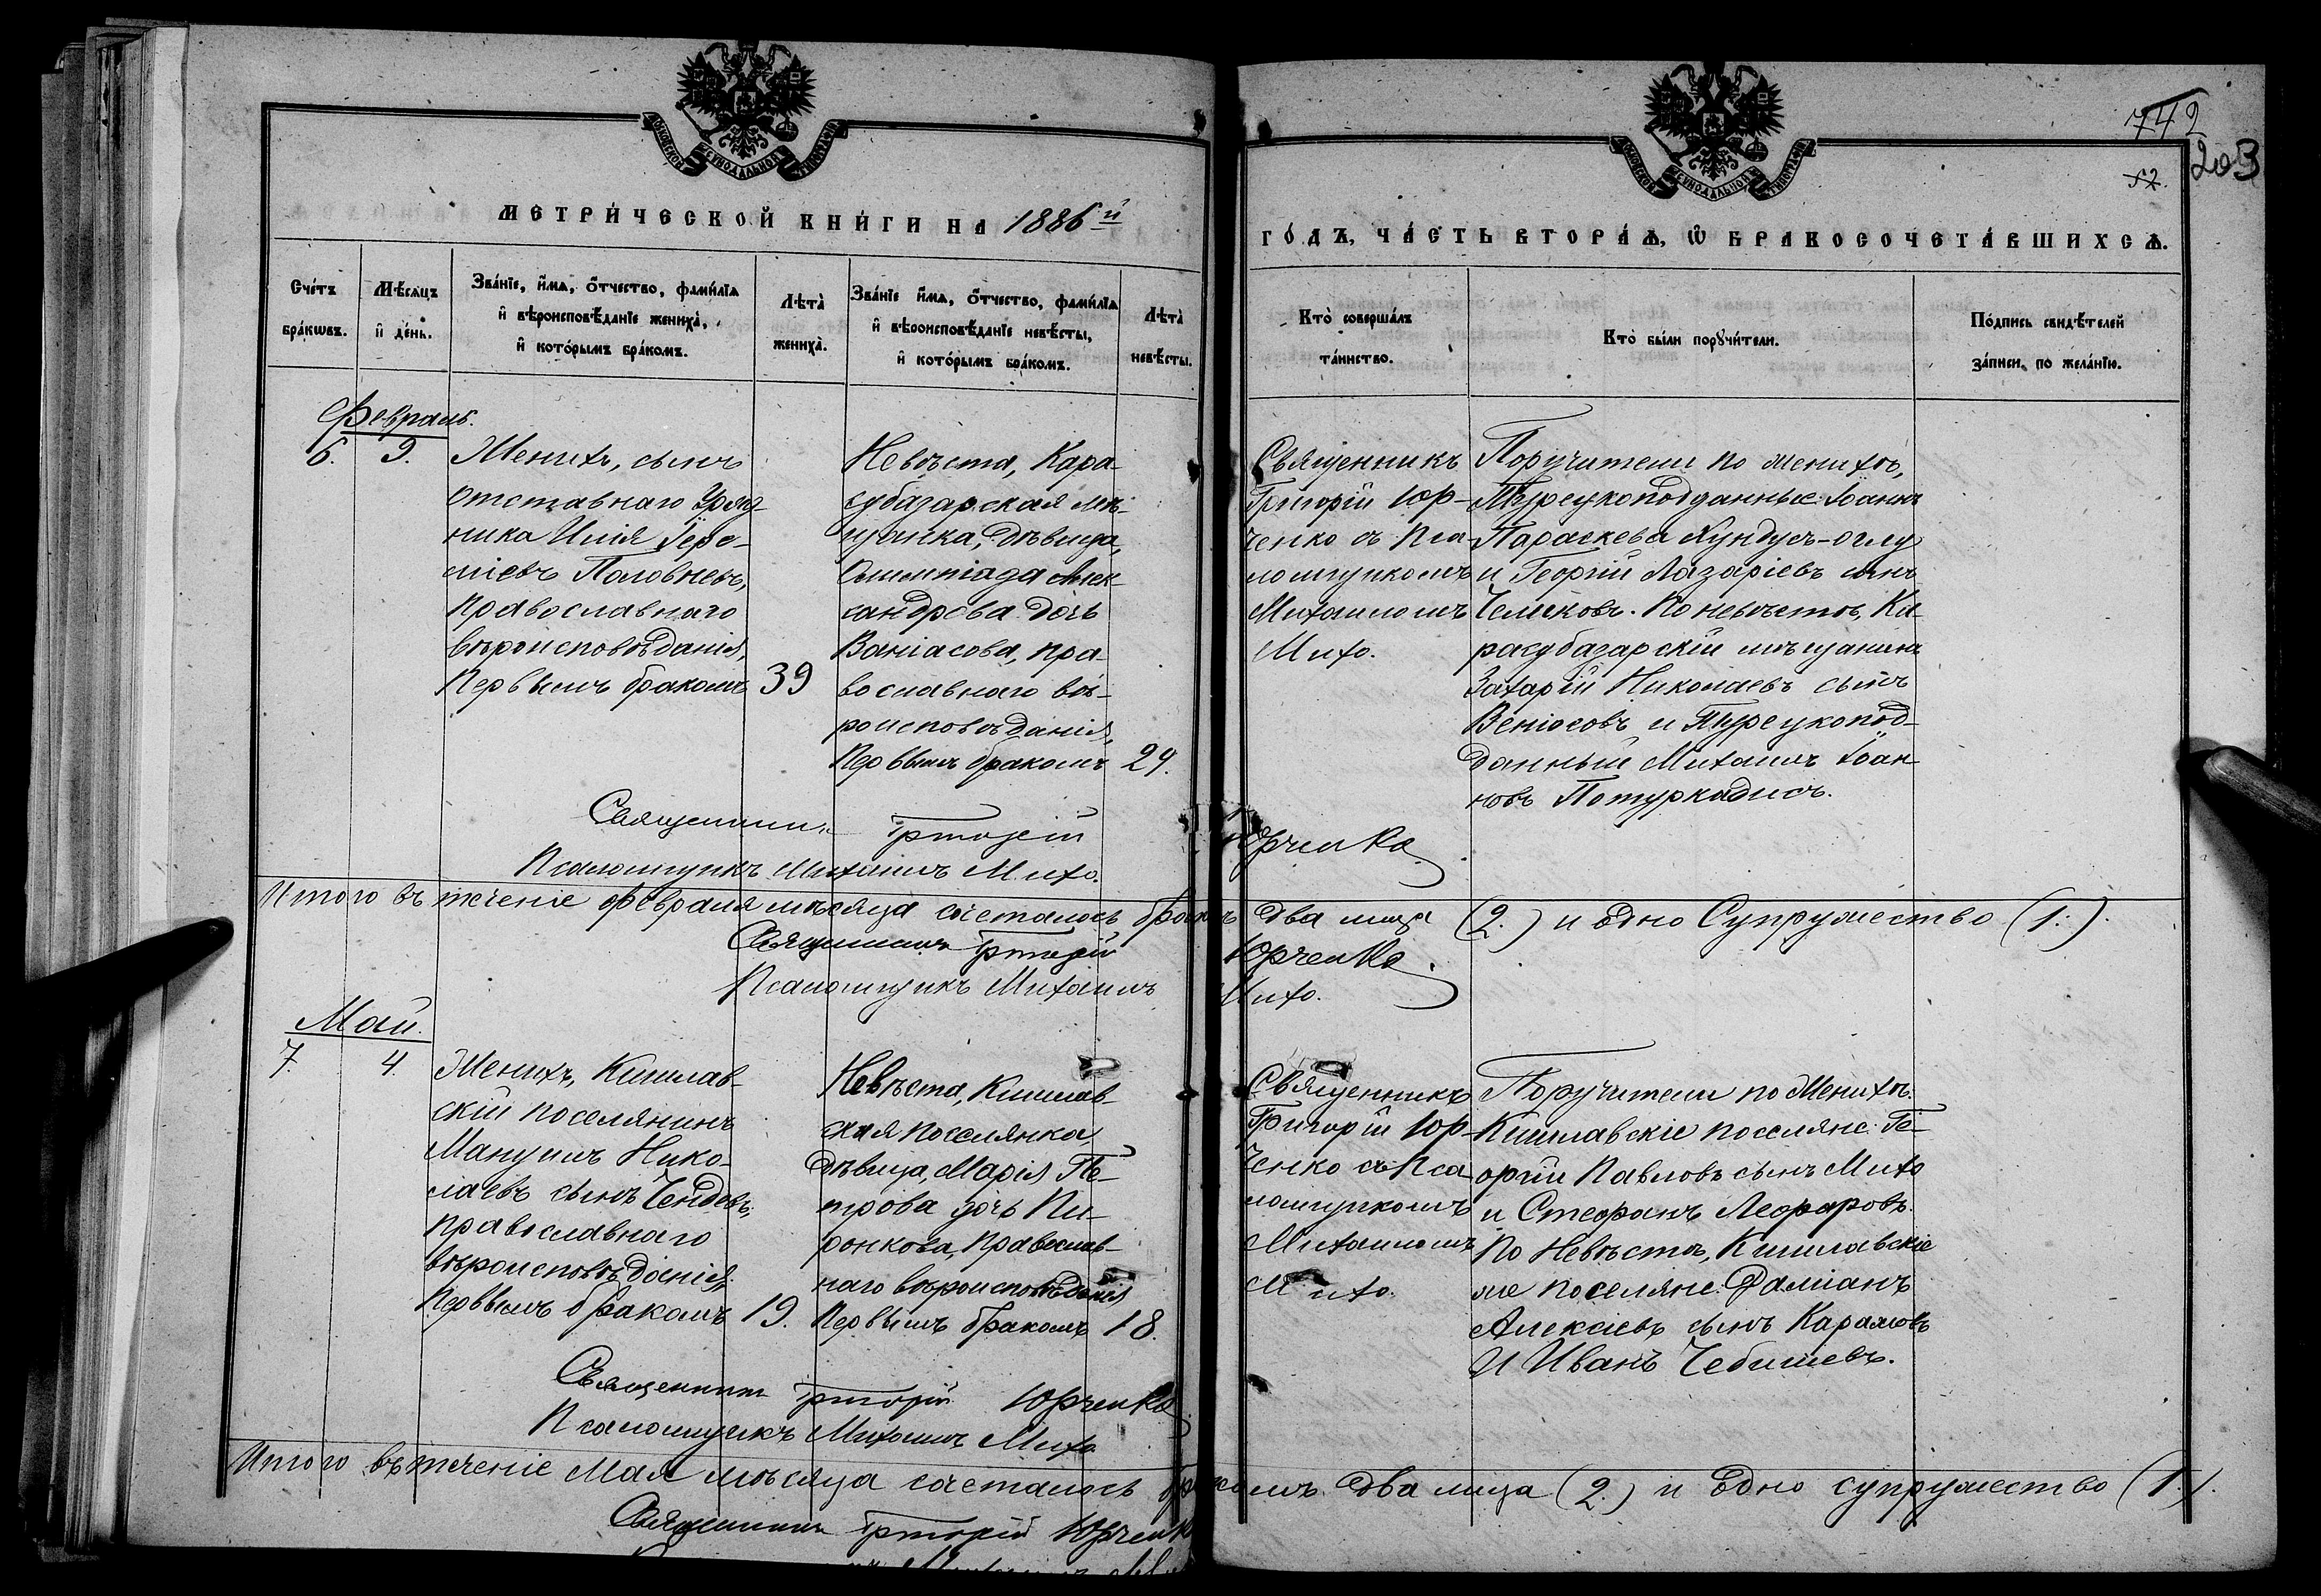 МЕТРИЧЕСКОЙ КНИГИ НА 1886й
ГОДЪ, ЧАСТЬ ВТОРАЯ, Ѿ БРАКОСОЧЕТАВШИХСЯ.
742
203
52.
Счетъ браковъ.
Мѣсяцъ и день.
Званіе, имя, отчество, фамилія
и вѣроисповѣданіе жениха,
и которымъ бракомъ.
Лѣта жениха.
Званіе имя, отчество, фамилія
и вѣроисповѣданіе невѣсты,
и которымъ бракомъ.
Лѣта невѣсты.
Кто совершалъ
таинство.
Кто были поручители.
Подпись свидѣтелей
записи по желанію.
Февраль.
6. 9.
Женихъ, сынъ
отставнаго Уряд-
ника Илія
Половневъ,
православнаго
вѣроисповѣданія,
Первымъ бракомъ 39
Невѣста, Кара-
субазарская мѣ-
щанка, дѣвица,
Олимпіада Алек-
сандрова дочь
Ваніасова, пра-
вославнаго вѣ-
роисповѣданія,
Первымъ бракомъ 29.
Священникъ
Григорій Юр-
ченко съ Пса-
ломщикомъ
Михаиломъ
Михо.
Поручители по женихѣ,
Турецкоподданные: Іоаннъ
Параскева Кундусъ-оглу
и Георгій Лазаріевъ сынъ
Челековъ. По невѣстѣ, Ка-
расубазарскій мѣщанинъ
Захарій Николаевъ сынъ
Веніосовъ и Турецкопод-
данный Михаилъ Іоан-
новъ
Священникъ Григорій Юрченко
Псаломщикъ Михаилъ Михо.
Итого въ теченіе Февраля мѣсяца сочеталось бракомъ два лица (2.) и одно Супружество (1.).
Священникъ Григорій Юрченко
Псаломщикъ Михаилъ Михо.
Май.
7. 4.
Женихъ, Кишлав-
скій поселянинъ
Мануилъ Нико-
лаевъ сынъ Чендевъ,
православнаго
вѣроисповѣданія,
Первымъ бракомъ 19.
Невѣста, Кишлав-
ская поселянка,
дѣвица, Марія Пе-
трова дочь Пи-
ронкова, Православ-
наго вѣроисповѣданія
Первымъ бракомъ 18.
Священникъ
Григорій Юр-
ченко съ Пса-
ломщикомъ
Михаиломъ
Михо.
Поручители по Женихѣ.
Кишлавскіе поселяне: Ге-
оргій Павловъ сынъ Михо
и Стефанъ Леофаровъ.
По Невѣстѣ, Кишлавскіе
же поселяне: Даміанъ
Алексіевъ сынъ
И Иванъ Чебишевъ.
Священникъ Григорій Юрченко
Псаломщикъ Михаилъ Михо
Итого въ теченіе Мая мѣсяца сочеталось бракомъ два лица (2.) и одно супружество (1.).
Священникъ Григорій Юрченко